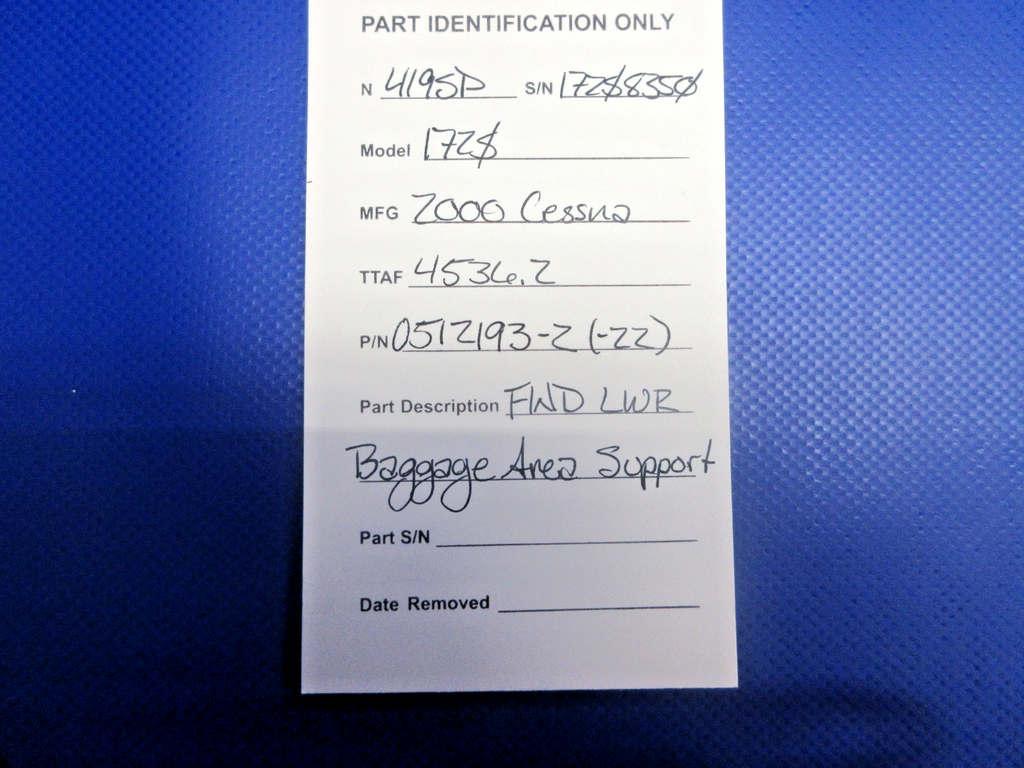 PART IDENTIFICATION ONLY
N 4195P S/N 172S8350
Model 172S
MFG 2000 Cessna
TTAF 4536.2
P/N 0512193-2 (-22)
Part Description FWD LWR
Baggage Area Support
Part S/N
Date Removed